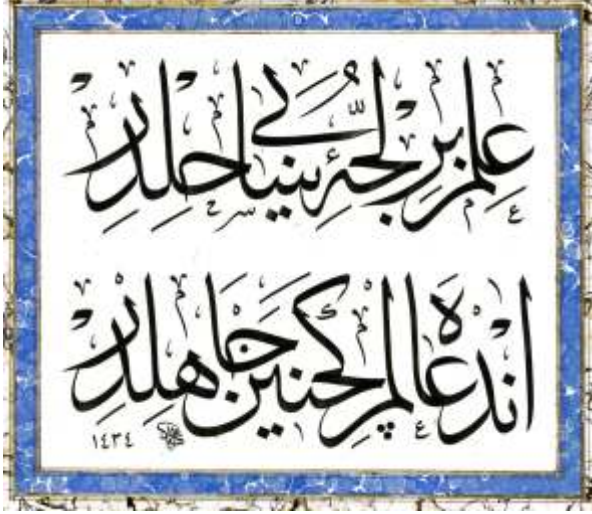 علم بر لجهٔ بی ساحلدر
انده عالم كچينن جاهلدر
١٤٣٤